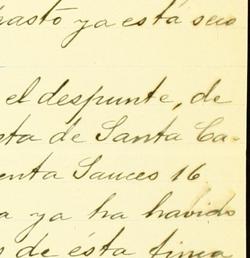 pasto ya está seco
el despunte, de
sta de Santa Ca-
enta Sauces 16
a ya ha habido
s de ésta finca